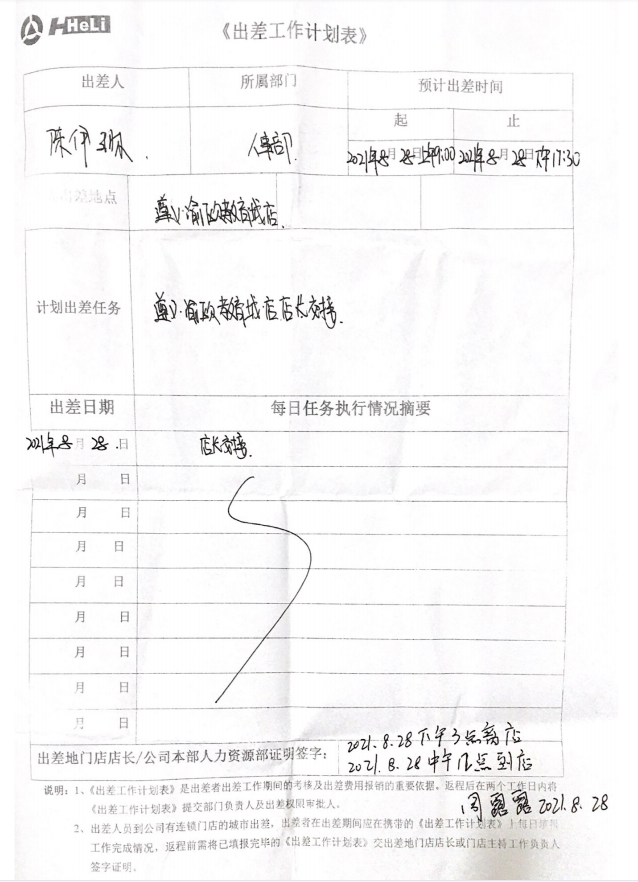 HHeLi
《出差工作计划表》
出差人 所属部门 预计出差时间
起 止
陈伊琳 人事部 2021年8月28日上午9:00 2021年8月28日下午17:30
出差地点 遵义·渝欧教育城店
计划出差任务 遵义·渝欧教育城店店长交接.
出差日期 每日任务执行情况摘要
2021年8月28日 店长交接.
月 日
月 日
月 日
月 日
月 日
月 日
月 日
月 日
出差地门店店长/公司本部人力资源部证明签字: 2021.8.28下午3点离店
2021.8.28中午12点到店
周露露 2021.8.28
说明:1、《出差工作计划表》是出差者出差工作期间的考核及出差费用报销的重要依据。返程后在两个工作日内将
《出差工作计划表》提交部门负责人及出差权限审批人。
2、出差人员到公司有连锁门店的城市出差,出差者在出差期间应在携带的《出差工作计划表》上每日填报
工作完成情况,返程前需将已填报完毕的《出差工作计划表》交出差地门店店长或门店主持工作负责人
签字证明。